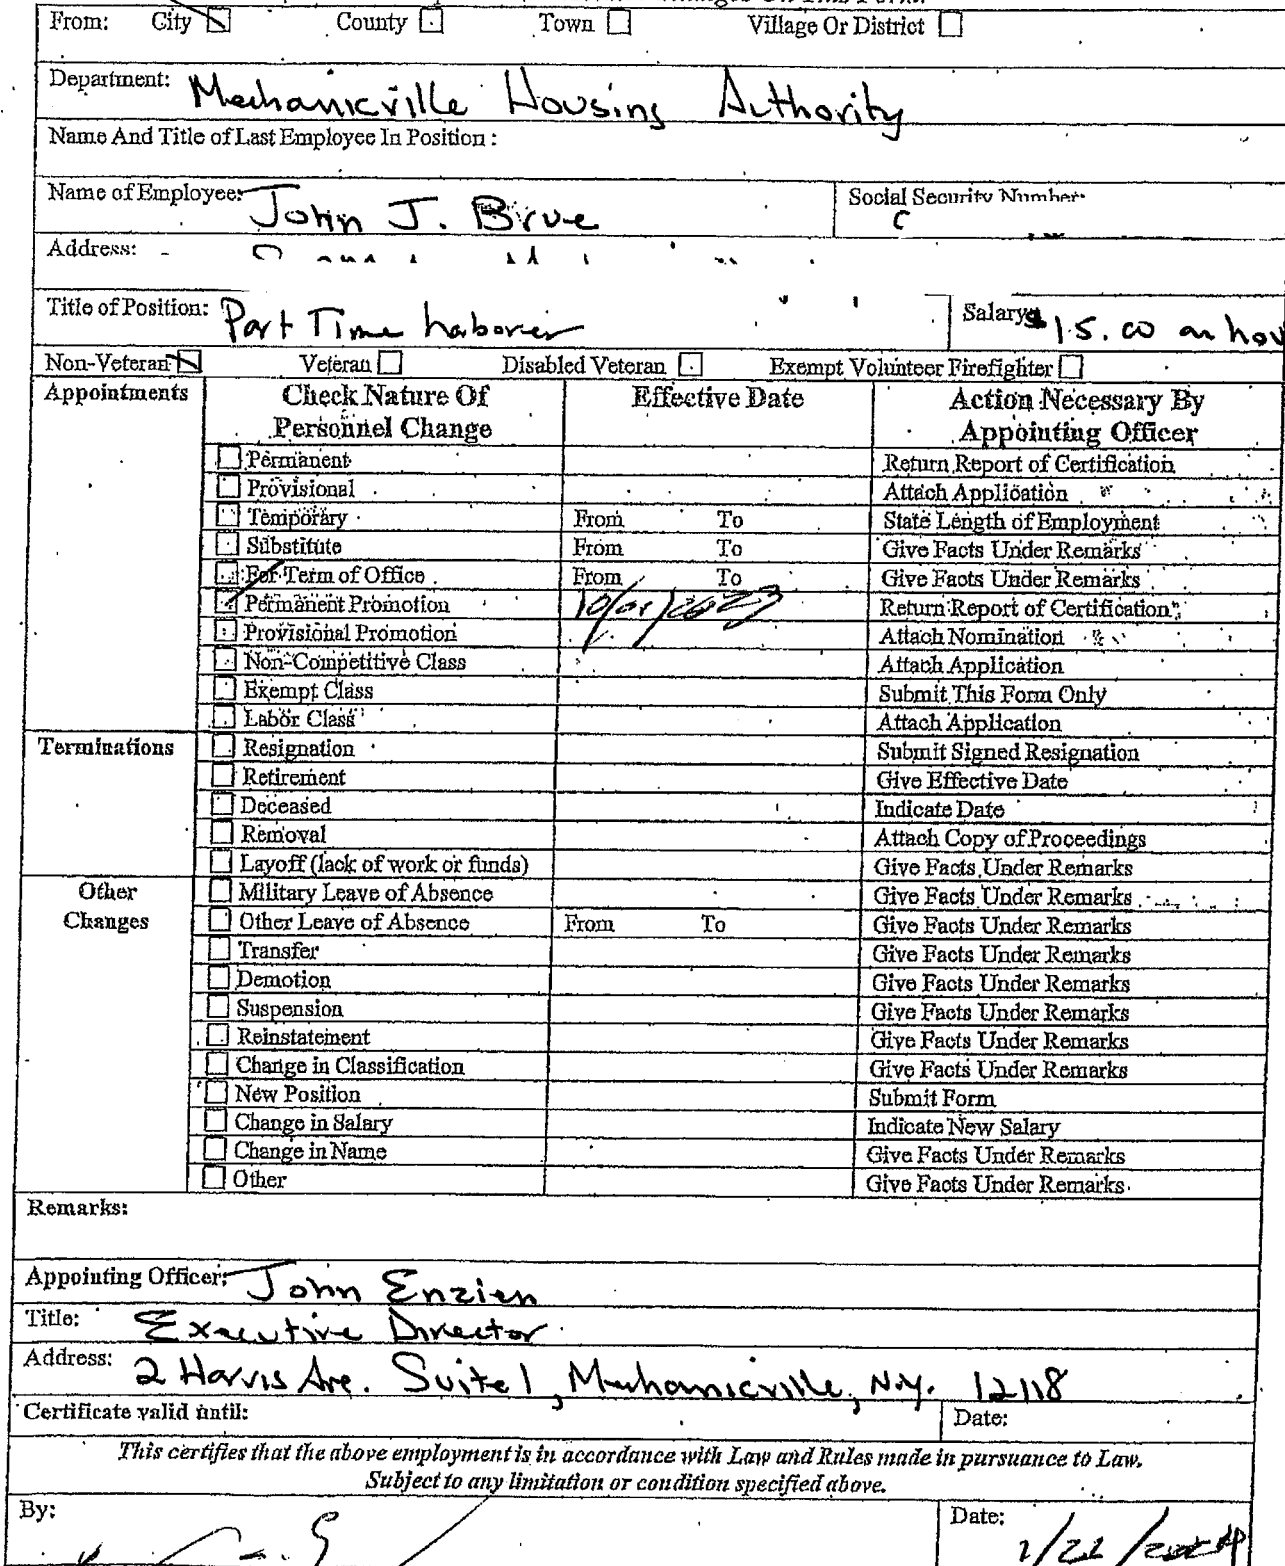 From: City County Town Village Or District
Department: Mechanicville Housing Authority
Name And Title of Last Employee In Position :
Name of Employee: John J. Brue Social Security Number:
Address:
Title of Position: Part Time Laborer Salary: $15.00 an hou
Non-Veteran Veteran Disabled Veteran Exempt Volunteer Firefighter
Appointments Check Nature Of Personnel Change Effective Date Action Necessary By Appointing Officer
Permanent Return Report of Certification
Provisional Attach Application
Temporary From To State Length of Employment
Substitute From To Give Facts Under Remarks
For Term of Office From To Give Facts Under Remarks
Permanent Promotion 10/01/2023 Return Report of Certification
Provisional Promotion Attach Nomination
Non-Competitive Class Attach Application
Exempt Class Submit This Form Only
Labor Class Attach Application
Terminations Resignation Submit Signed Resignation
Retirement Give Effective Date
Deceased Indicate Date
Removal Attach Copy of Proceedings
Layoff (lack of work or funds) Give Facts Under Remarks
Other Changes Military Leave of Absence Give Facts Under Remarks
Other Leave of Absence From To Give Facts Under Remarks
Transfer Give Facts Under Remarks
Demotion Give Facts Under Remarks
Suspension Give Facts Under Remarks
Reinstatement Give Facts Under Remarks
Change in Classification Give Facts Under Remarks
New Position Submit Form
Change in Salary Indicate New Salary
Change in Name Give Facts Under Remarks
Other Give Facts Under Remarks
Remarks:
Appointing Officer: John Enzien
Title: Executive Director
Address: 2 Harris Ave. Suite 1, Mechanicville, N.Y. 12118
Certificate valid until: Date:
This certifies that the above employment is in accordance with Law and Rules made in pursuance to Law.
Subject to any limitation or condition specified above.
By: Date: